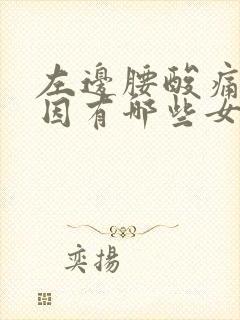 左邊腰酸痛
因有哪些女
奕揚